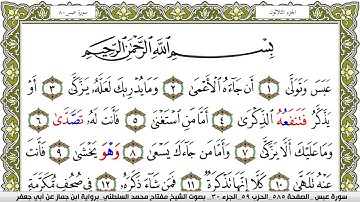 الجزء الثلاثون
سورة عبس ٨٠
بِسْمِ اللَّهِ الرَّحْمَٰنِ الرَّحِيمِ
عَبَسَ وَتَوَلَّىٰ ١ أَن جَاءَهُ الْأَعْمَىٰ ٢ وَمَا يُدْرِيكَ لَعَلَّهُ يَزَّكَّىٰ ٣ أَوْ
يَذَّكَّرُ فَتَنفَعُهُ الذِّكْرَىٰ ٤ أَمَّا مَنِ اسْتَغْنَىٰ ٥ فَأَنتَ لَهُ تَصَّدَّىٰ ٦
وَمَا عَلَيْكَ أَلَّا يَزَّكَّىٰ ٧ وَأَمَّا مَن جَاءَكَ يَسْعَىٰ ٨ وَهْوَ يَخْشَىٰ ٩ فَأَنتَ
عَنْهُ تَلَهَّىٰ ١٠ كَلَّا إِنَّهَا تَذْكِرَةٌ ١١ فَمَن شَاءَ ذَكَرَهُ ١٢ فِي صُحُفٍ مُّكَرَّمَةٍ
سورة عبس - الصفحة ٥٨٥ الحزب ٥٩ الجزء ٣٠ - بصوت الشيخ مفتاح محمد السلطني برواية ابن جماز عن أبي جعفر